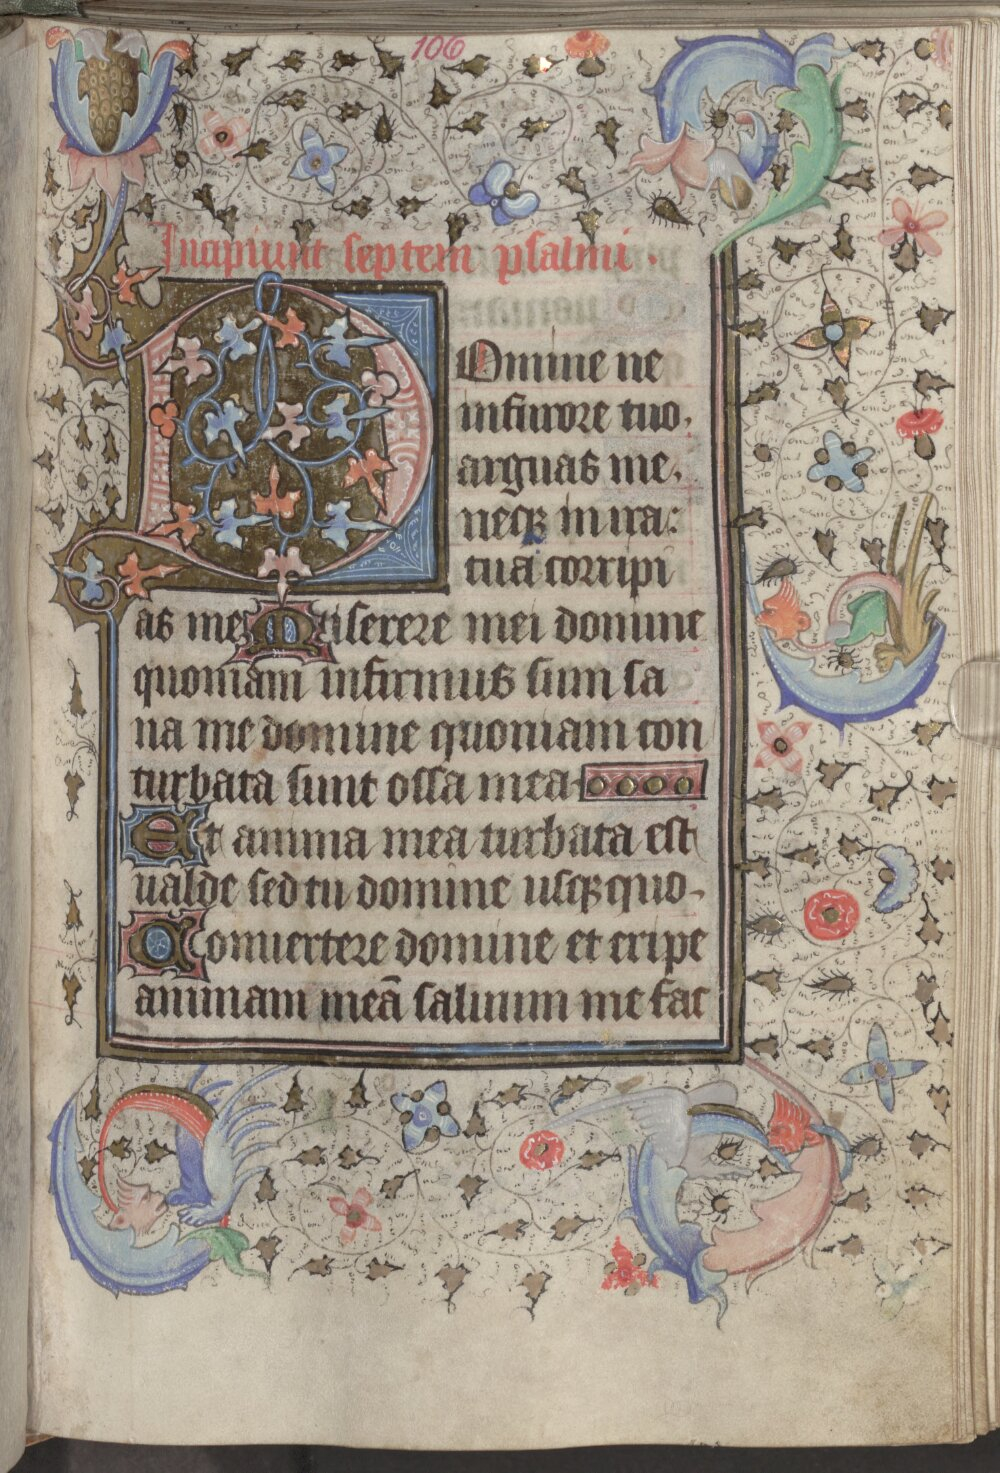 106
Incipiunt septem psalmi .
Domine ne
in furore tuo.
arguas me.
neqꝫ in ira:
tuā corripi
as me Miserere mei domine
quoniam infirmus sum sa
na me domine quoniam con
turbata sunt ossa mea
Et anima mea turbata est
ualde sed tu domine usqꝫ quo.
Conuertere domine et eripe
animam meā saluum me fac